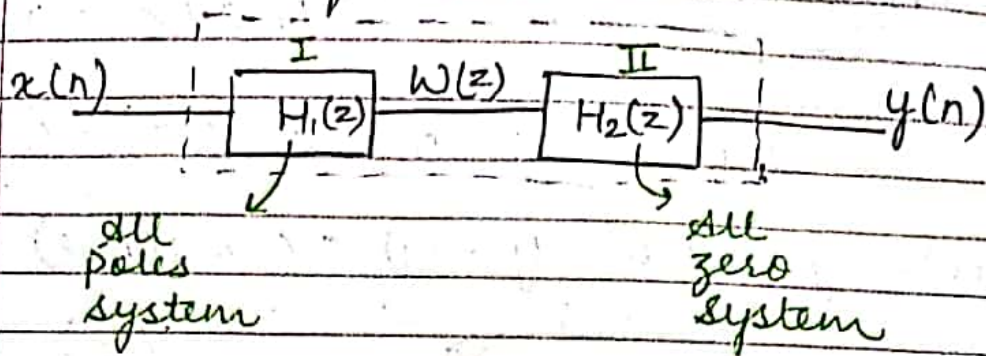 I
II
x(n)
H₁(z)
W(z)
H₂(z)
y(n)
All
poles
system
All
zero
system